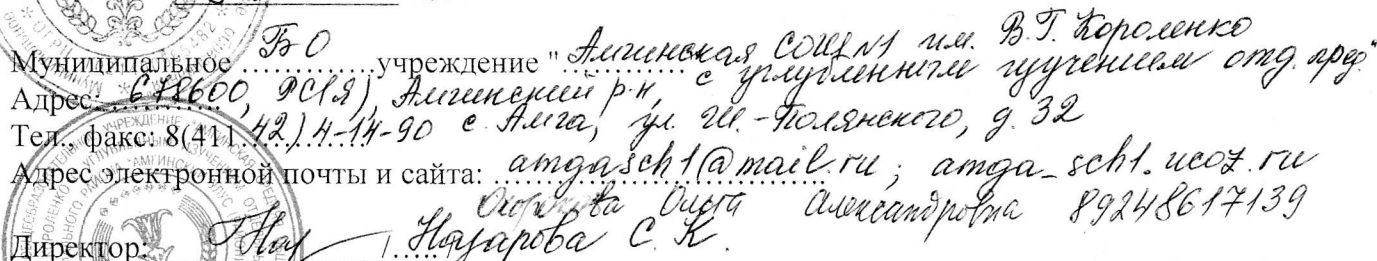 Муниципальное БО учреждение "Амгинская СОШ №1 им. В.Г. Короленко
с углубленным изучением отд. пред."
Адрес: 678600, РС(Я), Амгинский р-н,
с. Амга, ул. Ш.-Полянского, д. 32
Тел., факс: 8(411 42) 4-14-90
Адрес электронной почты и сайта: amgasch1@mail.ru; amga_sch1.ucoz.ru
Ольга Александровна 89248617139
Директор: Назарова С.К.